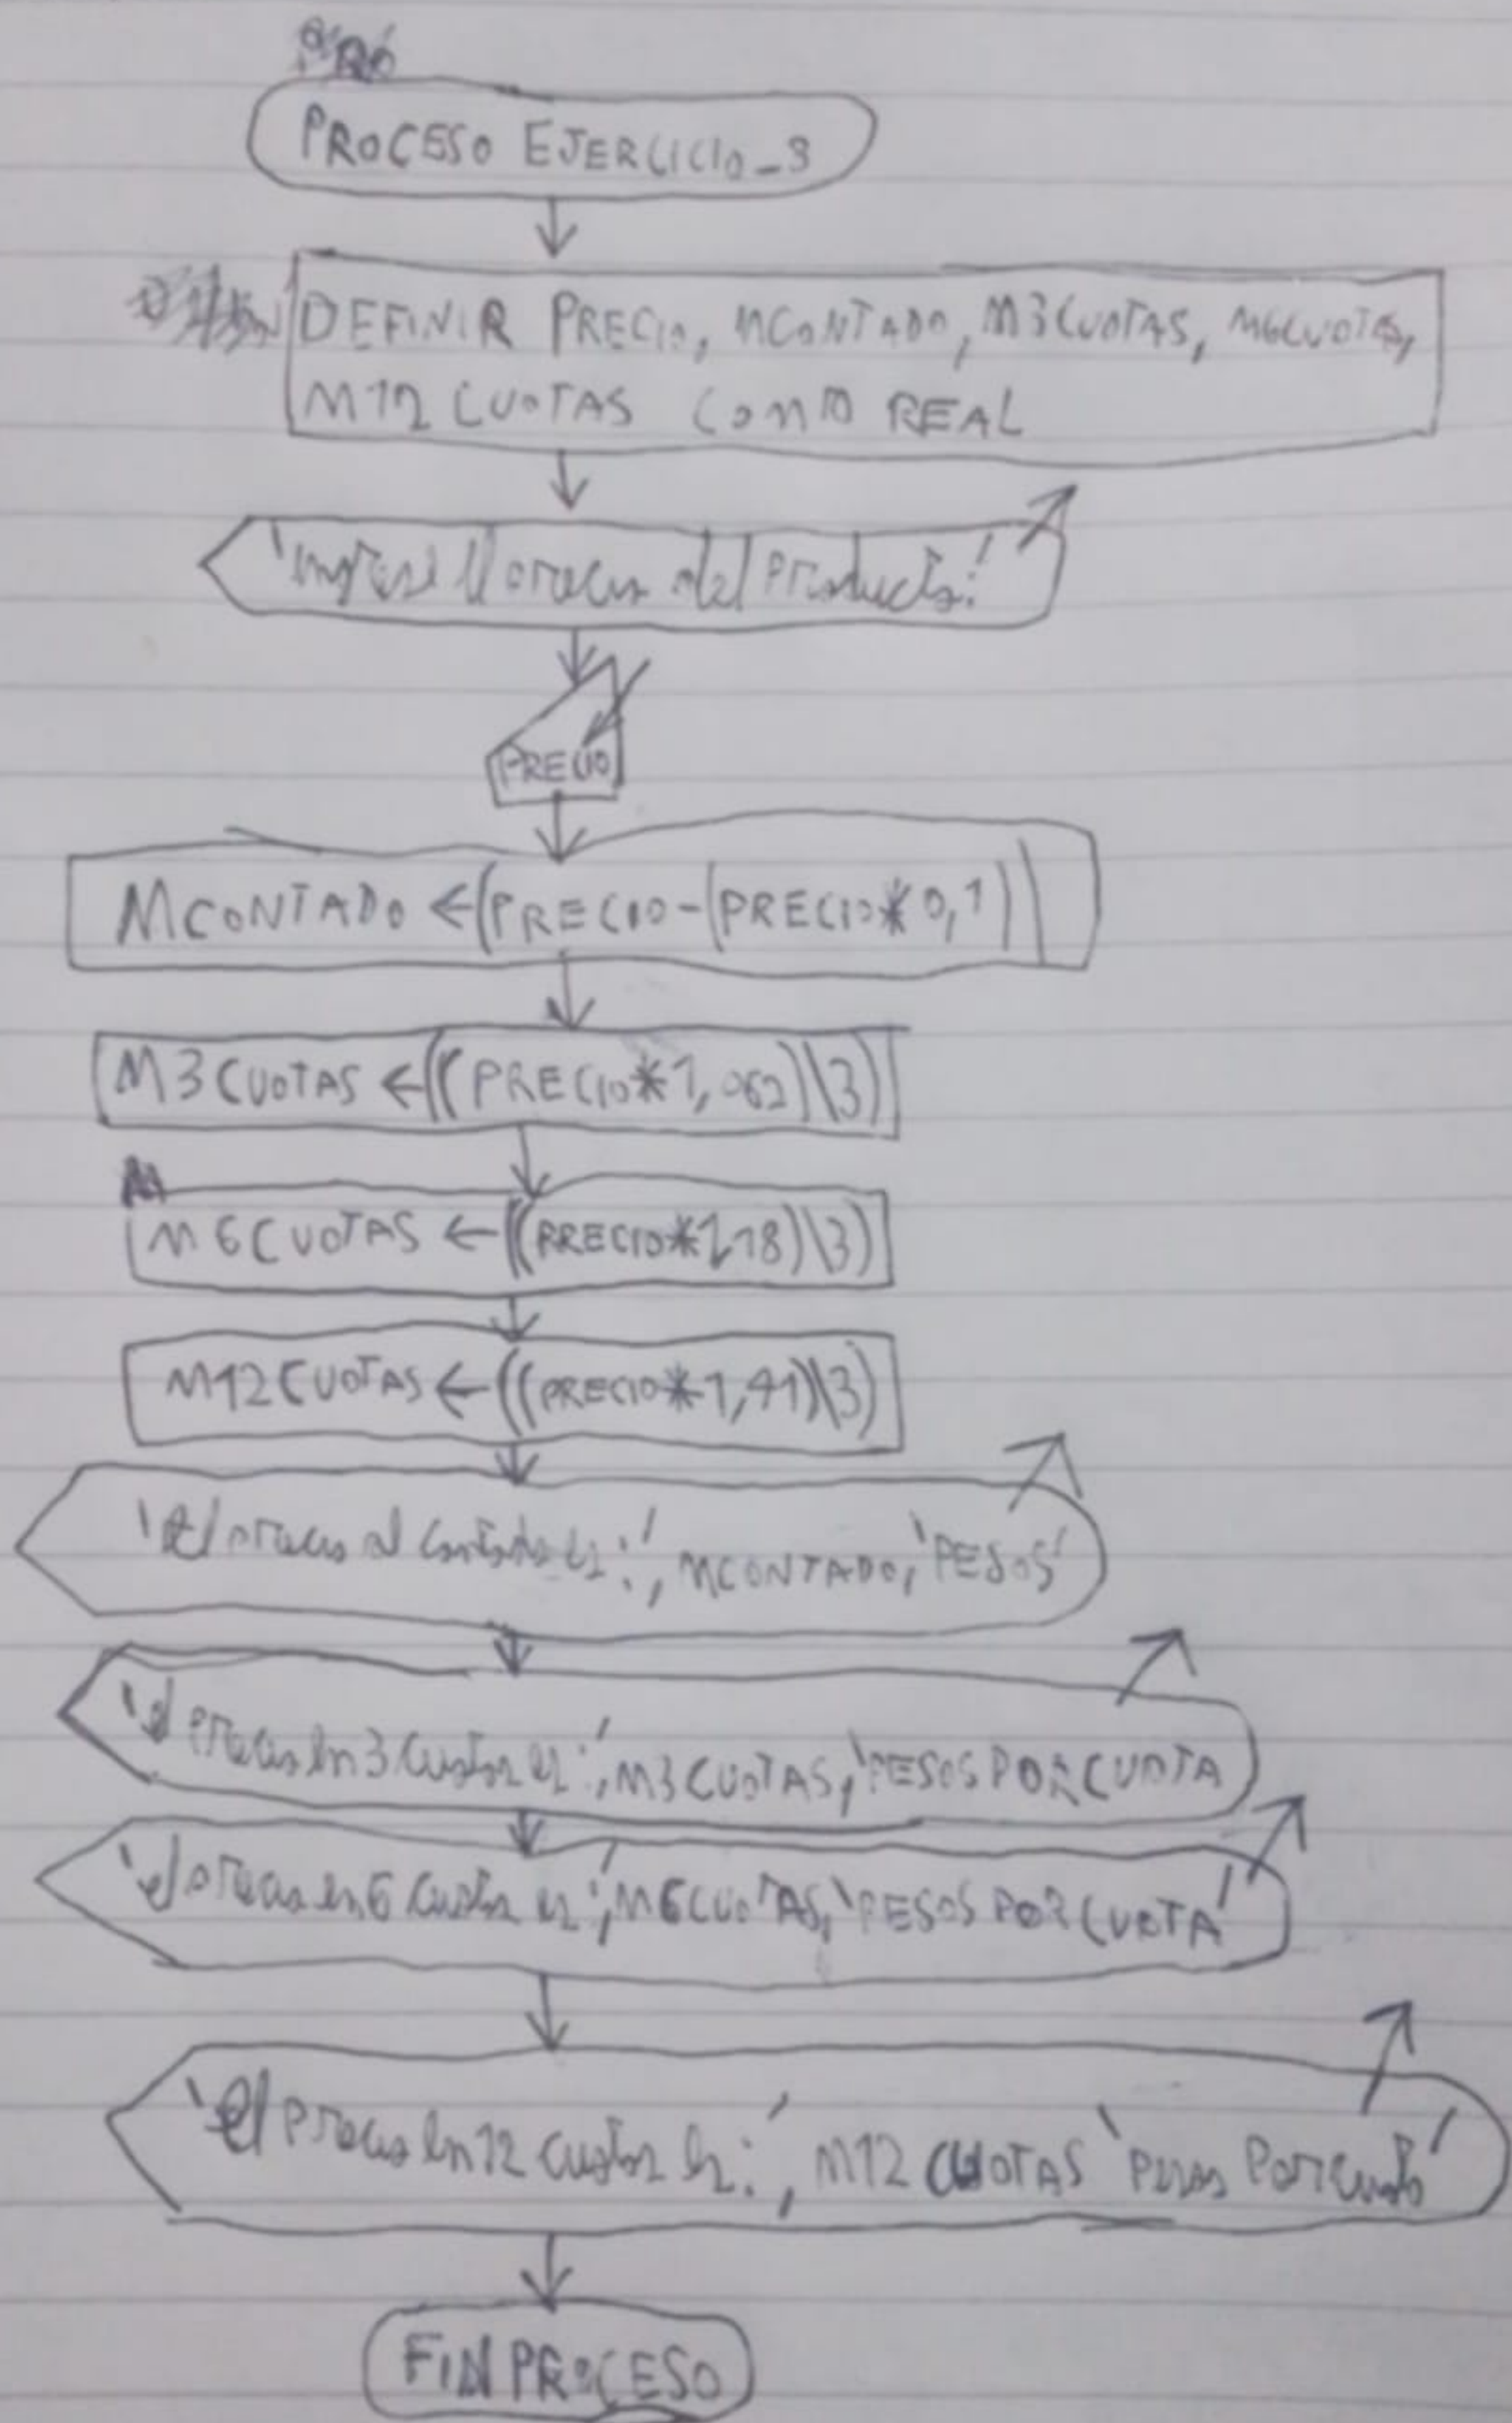 PROCESO EJERCICIO_3
DEFINIR PRECIO, MCONTADO, M3CUOTAS, M6CUOTAS,
M12 CUOTAS COMO REAL
'Ingrese el precio del producto:'
PRECIO
MCONTADO ←(PRECIO-(PRECIO*0,1))
M3CUOTAS ←((PRECIO*1,062)\3)
M6CUOTAS ←((PRECIO*1,18)\3)
M12CUOTAS ←((PRECIO*1,41)\3)
'El precio al contado es:', MCONTADO, 'PESOS'
'el precio en 3 cuotas es:', M3CUOTAS, 'PESOS POR CUOTA
'el precio en 6 cuotas es:', M6CUOTAS, 'PESOS POR CUOTA'
'El precio en 12 cuotas es:', M12 CUOTAS 'pesos por cuota'
FINPROCESO